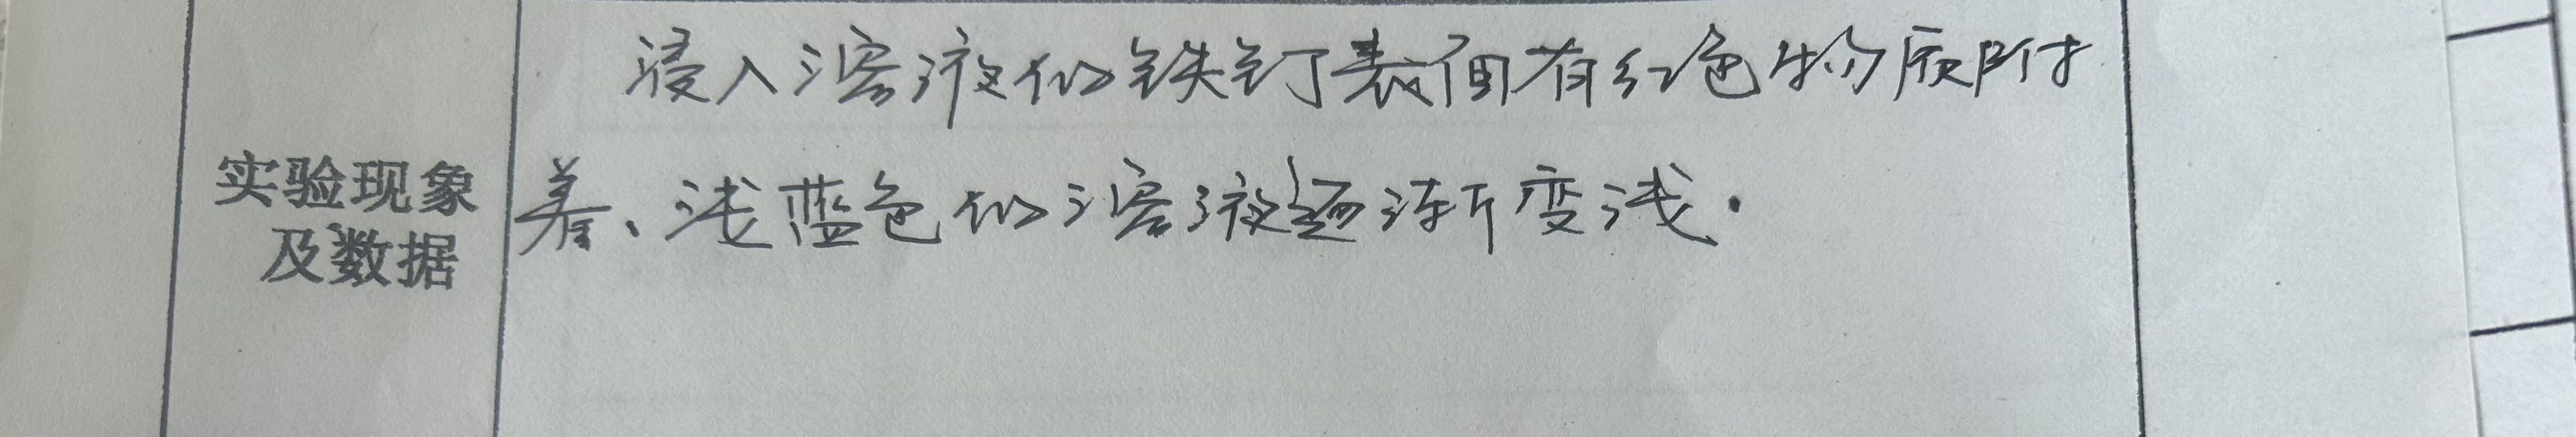 浸入溶液的铁钉表面有红色物质附
实验现象
及数据
着、浅蓝色的溶液逐渐变浅.